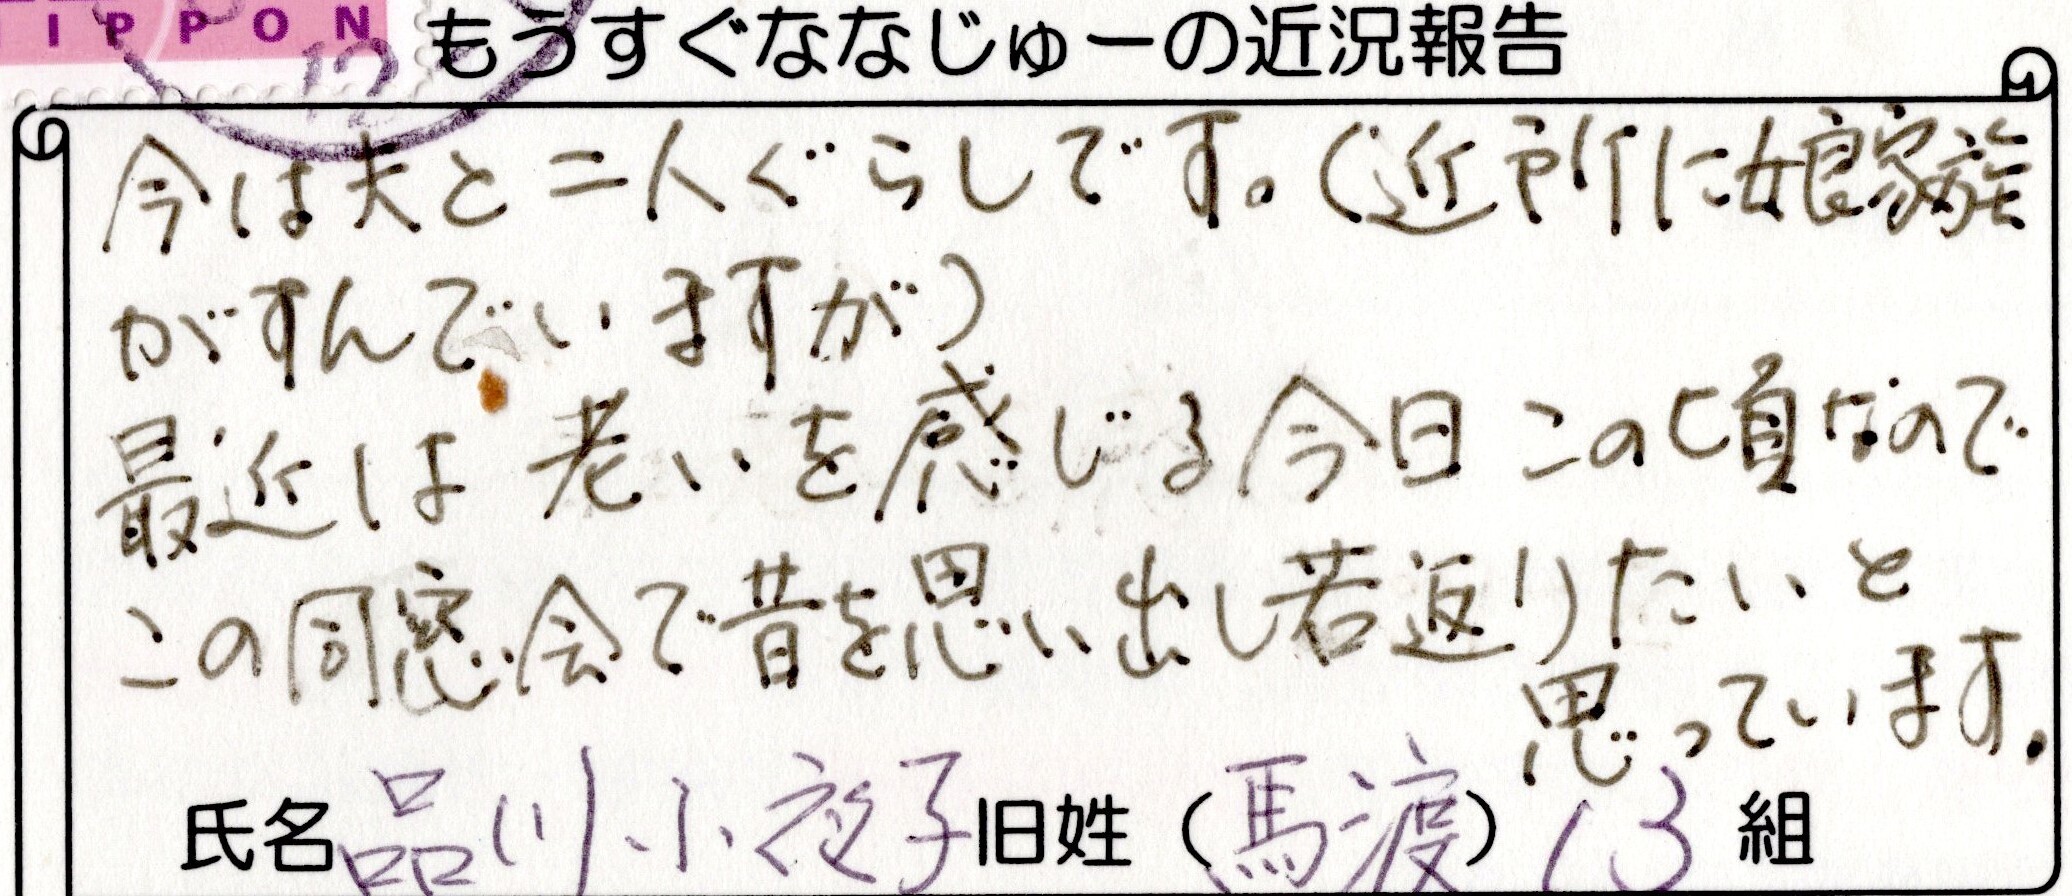 NIPPON
12
もうすぐななじゅーの近況報告
今は夫と二人ぐらしです。(近所に娘家族
がすんでいますが)
最近は老いを感じる今日この頃なので
この同窓会で昔を思い出し若返りたいと
思っています。
氏名 品川小夜子 旧姓(馬渡) 13 組